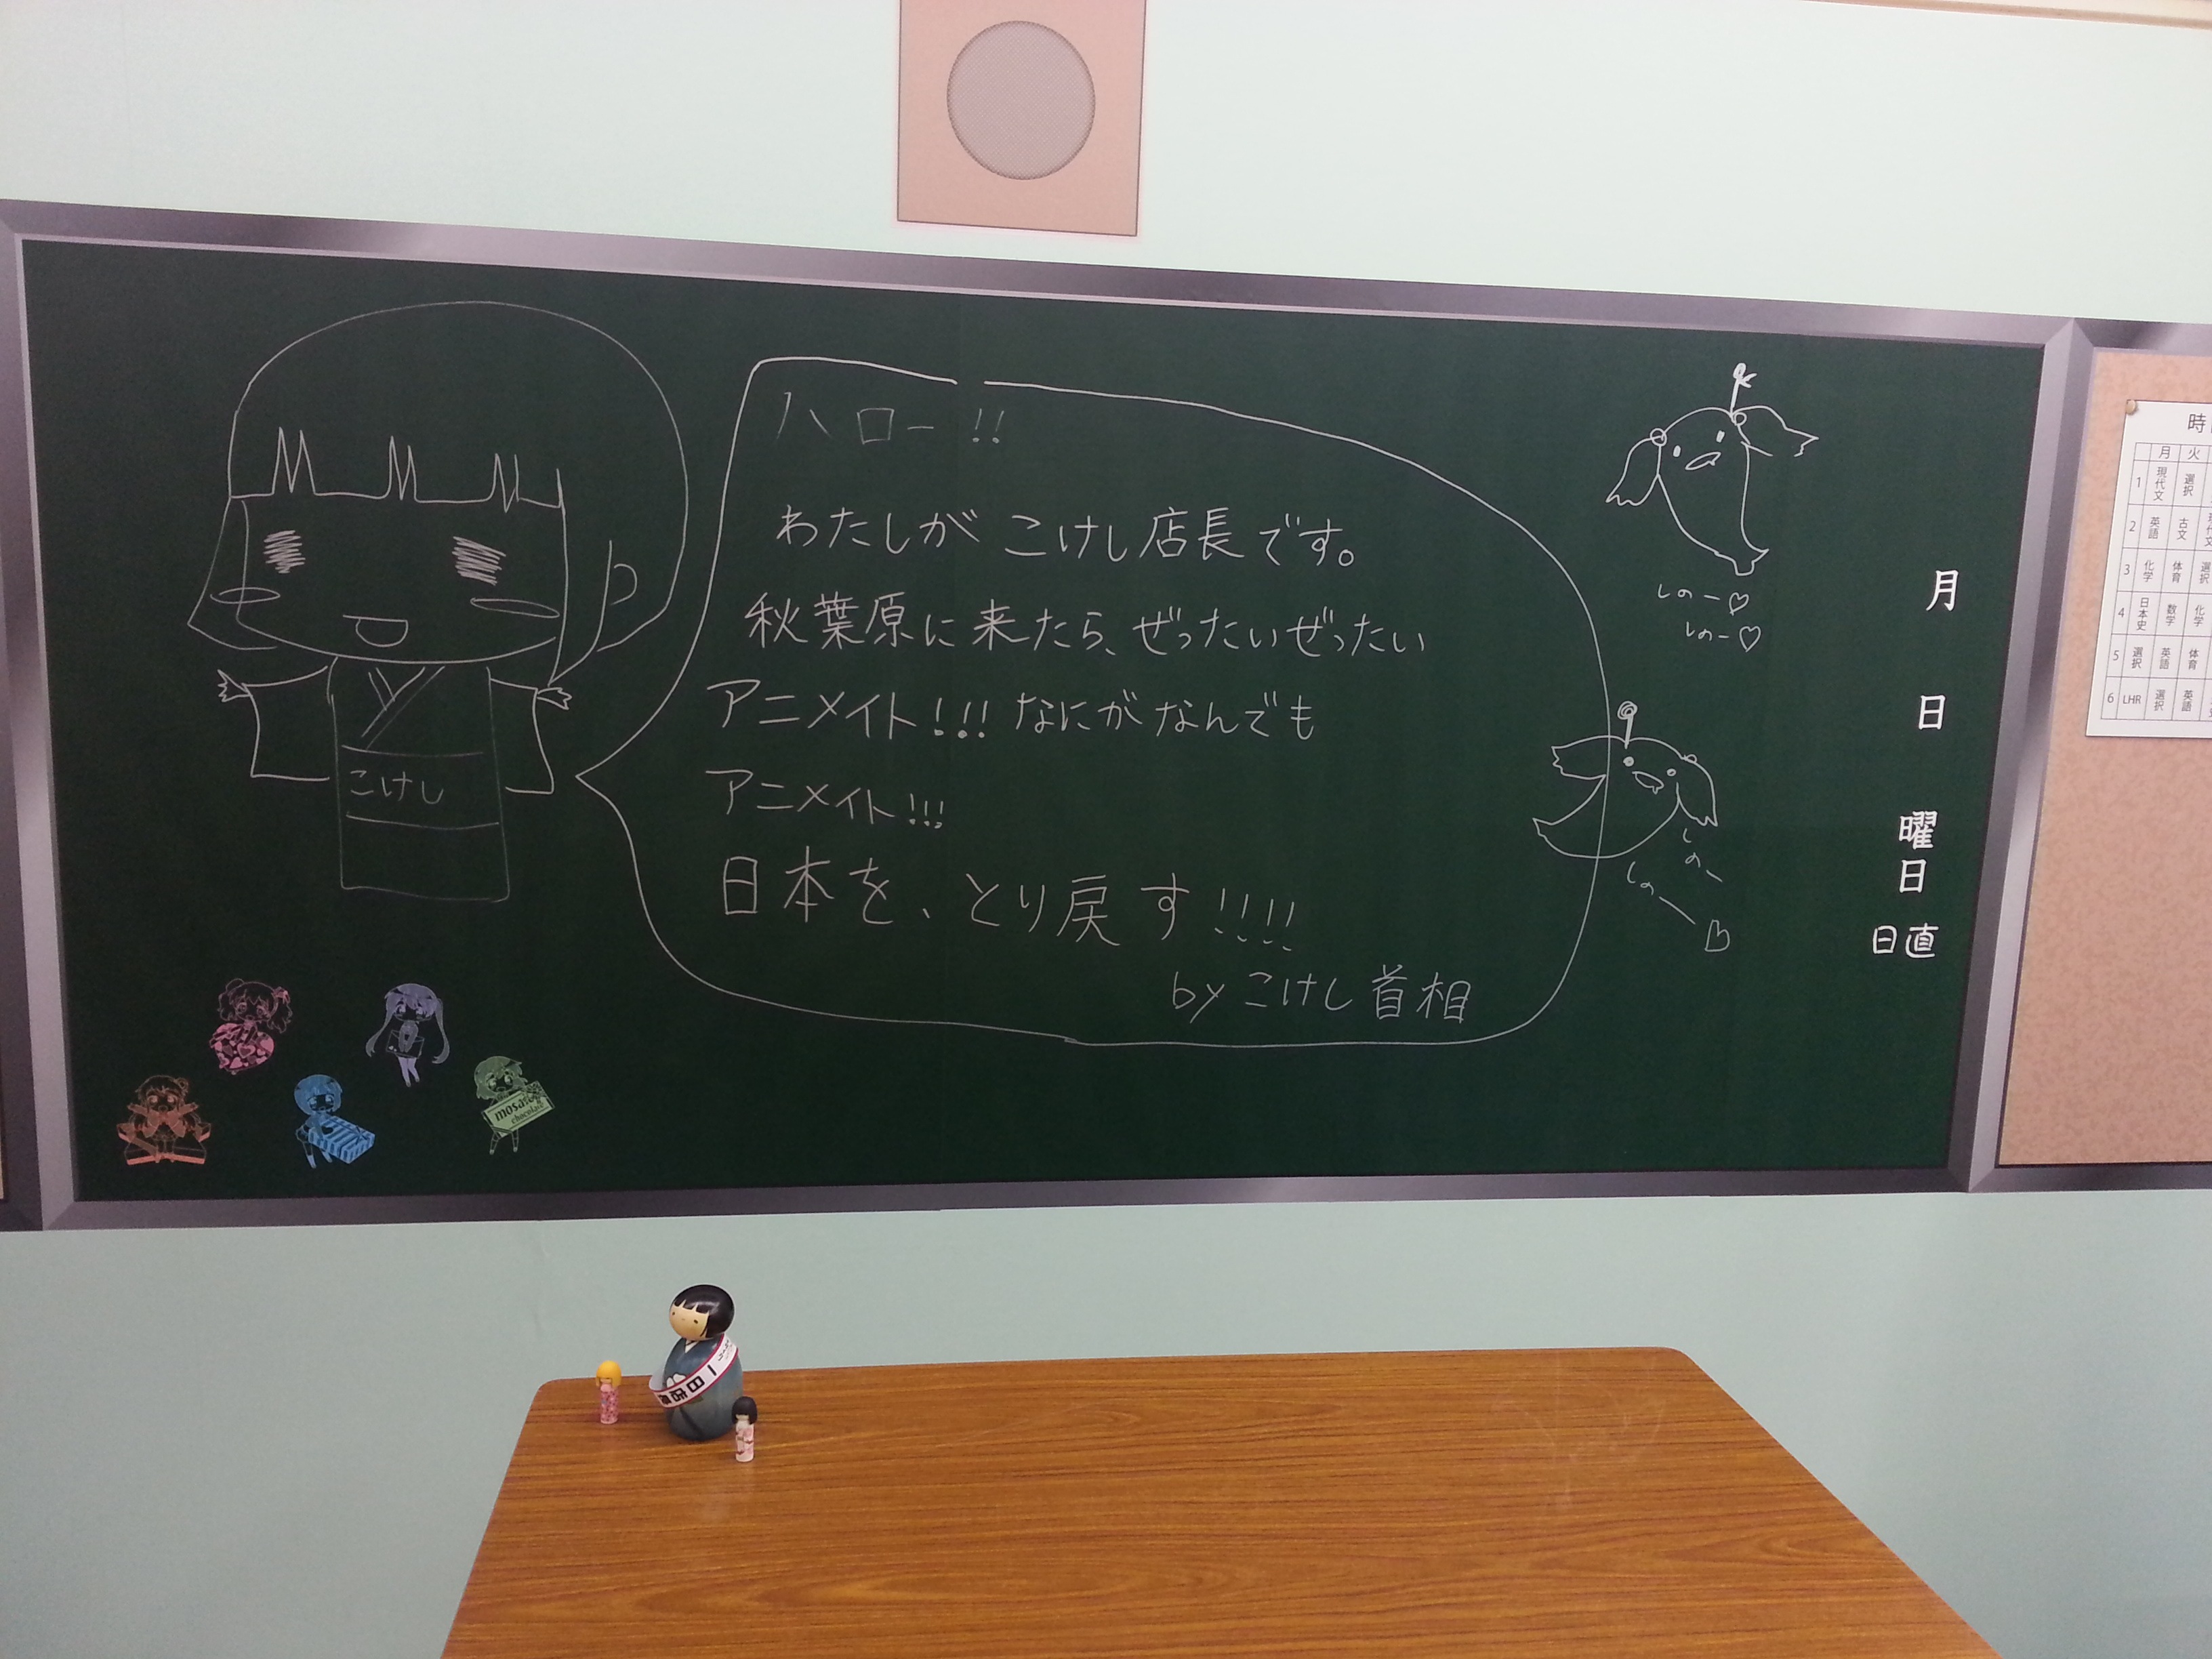 ハロー!!
わたしが こけし店長です。
秋葉原に来たら、ぜったいぜったい
アニメイト!!! なにがなんでも
アニメイト!!!
日本を、とり戻す!!!!
by こけし首相
こけし
しのー♡
しのー♡
しのー
しのー♡
月
日
曜日
日直
mosaic
chocolate
時
月 火
1 現代文 選択
2 英語 古文
3 化学 体育 選択
4 日本史 数学 化学
5 選択 英語 体育
6 LHR 選択 英語
一日店長